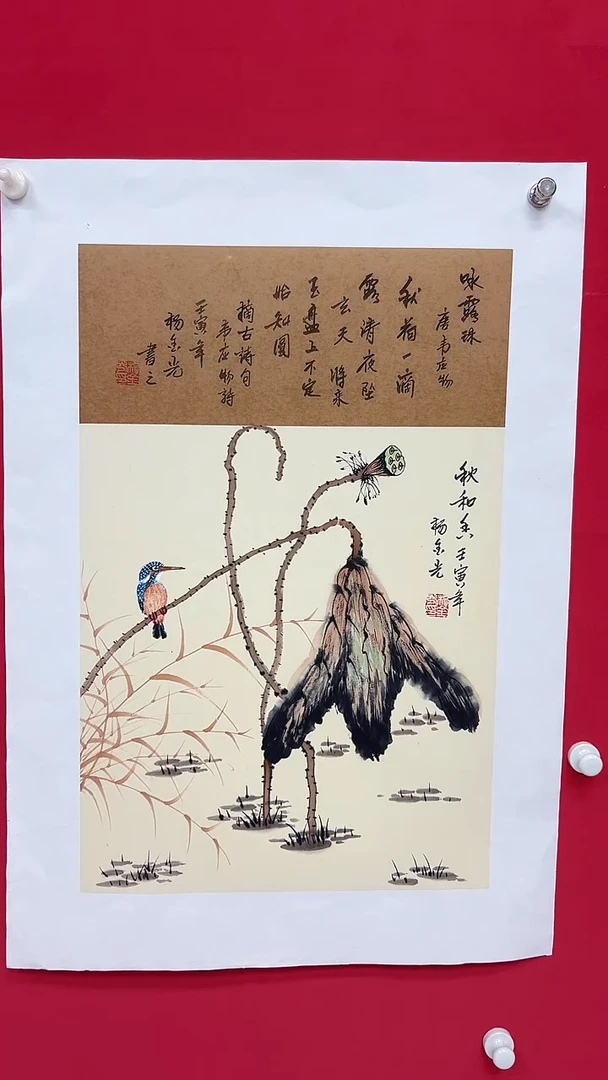 咏露珠
唐韦应物
秋荷一滴
露清夜坠
玄天将来
玉盘上不定
始知圆
摘古诗句
韦应物诗
壬寅年
杨金光
书之
秋和 壬寅年
杨金光